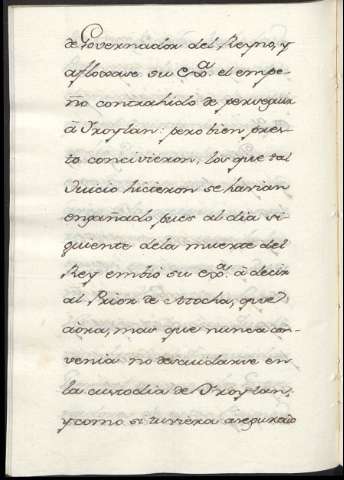 de Governador del Reyno, y
afloxase su Exª. el empe-
ño contrahido de perseguir
á Froylan: pero bien pres-
to concivieron, los que tal
Juicio hicieron se havian
engañado, pues al dia si-
guiente dela muerte del
Rey embió su Exª. á decir
al Prior de Atocha, que
aora, mas que nunca con-
venia no descuidarse en
la custodia de Froylan;
y como si tuviera asegurado